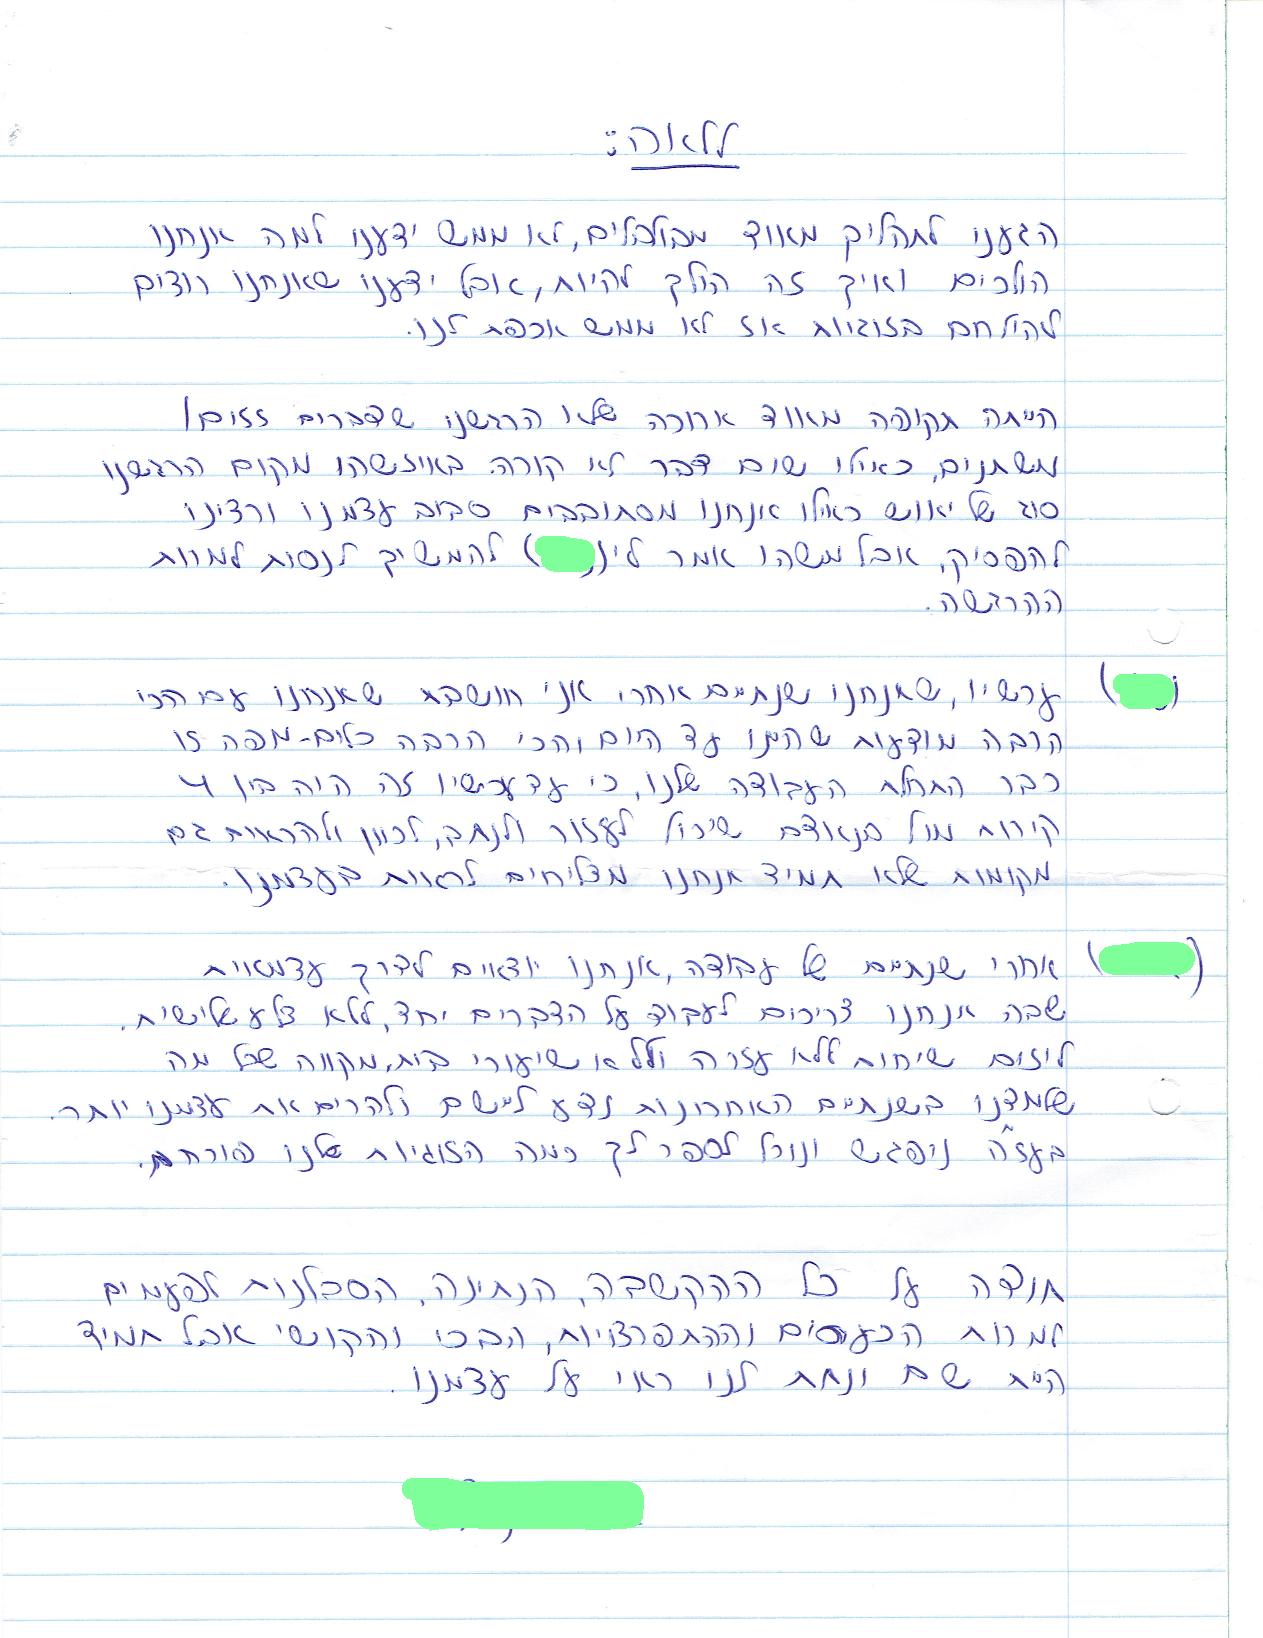 ללאה:
הגענו לתהליך מאווד מבולבלים, לא ממש ידענו למה אנחנו
הולכים ואיך זה הולך להיות, אבל ידענו שאנחנו רוצים
להילחם בזוגיות אז לא ממש אכפת לנו.
הייתה תקופה מאווד ארוכה שלא הרגשנו שדברים זזים/
משתנים, כאילו שום דבר לא קורה. באיזשהו מקום הרגשנו
סוג של יאוש כאילו אנחנו מסתובבים סביב עצמנו ורצינו
להפסיק, אבל משהו אמר לי ( ) להמשיך לנסות למרות
ההרגשה.
( ) עכשיו, שאנחנו שנתיים אחרי, אני חושבת שאנחנו עם הכי
הרבה מודעות שהיינו עד היום והכי הרבה כלים - מפה זו
כבר התחלת העבודה שלנו, כי עד עכשיו זה היה בין 4
קירות מול בנאדם שיכול לעזור ולנתב, לכוון ולהראות גם
מקומות שלא תמיד אנחנו מצליחים לראות בעצמנו.
( ) אחרי שנתיים של עבודה, אנחנו יוצאים לדרך עצמאית
שבה אנחנו צריכים לעבוד על הדברים יחד, ללא צלע שלישית.
ליזום שיחות ללא עזרה וללא שיעורי בית, מקווה שכל מה
שלמדנו בשנתיים האחרונות נדע ליישם ולהרים את עצמנו יותר.
בעז"ה ניפגש ונוכל לספר לך כמה הזוגיות שלנו פורחת.
תודה על כל ההקשבה, הנתינה, הסבלנות לפעמים
למרות הכעסים וההתפרצויות, הבכי והקושי אבל תמיד
היית שם ונתת לנו ראי על עצמנו.